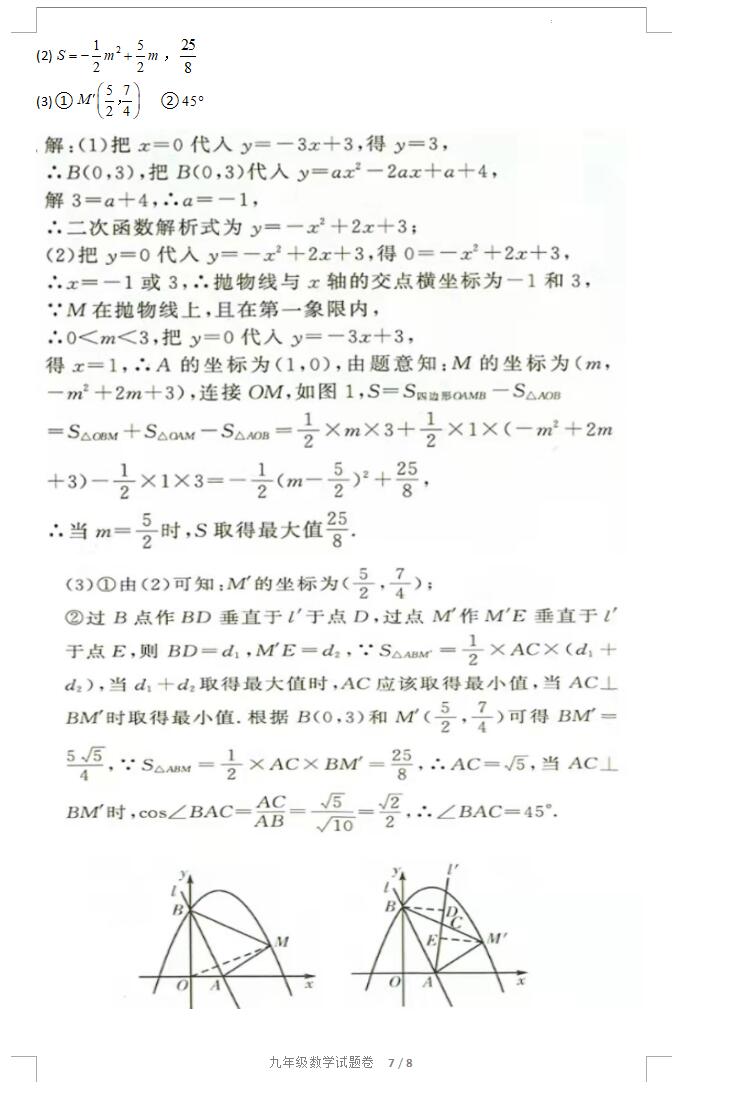 (2) S=-1/2m²+5/2m，25/8
(3) ① M′(5/2,7/4) ② 45°
解:(1)把 x=0 代入 y=-3x+3,得 y=3,
∴B(0,3),把 B(0,3)代入 y=ax²-2ax+a+4,
解 3=a+4,∴a=-1,
∴二次函数解析式为 y=-x²+2x+3;
(2)把 y=0 代入 y=-x²+2x+3,得 0=-x²+2x+3,
∴x=-1 或 3,∴抛物线与 x 轴的交点横坐标为-1 和 3,
∵M 在抛物线上,且在第一象限内,
∴0<m<3,把 y=0 代入 y=-3x+3,
得 x=1,∴A 的坐标为(1,0),由题意知:M 的坐标为(m,
-m²+2m+3),连接 OM,如图 1,S=S四边形OAMB-S△AOB
=S△OBM+S△OAM-S△AOB=1/2×m×3+1/2×1×(-m²+2m
+3)-1/2×1×3=-1/2(m-5/2)²+25/8,
∴当 m=5/2时,S 取得最大值25/8.
(3)①由(2)可知:M′的坐标为(5/2,7/4);
②过 B 点作 BD 垂直于 l′于点 D,过点 M′作 M′E 垂直于 l′
于点 E,则 BD=d₁,M′E=d₂,∵S△ABM′=1/2×AC×(d₁+
d₂),当 d₁+d₂取得最大值时,AC 应该取得最小值,当 AC⊥
BM′时取得最小值.根据 B(0,3)和 M′(5/2,7/4)可得 BM′=
5√5/4,∵S△ABM=1/2×AC×BM′=25/8,∴AC=√5,当 AC⊥
BM′时,cos∠BAC=AC/AB=√5/√10=√2/2,∴∠BAC=45°.
y
l
B
M
O
A
x
y
l′
l
B
D
C
E
M′
O
A
x
九年级数学试题卷 7 / 8